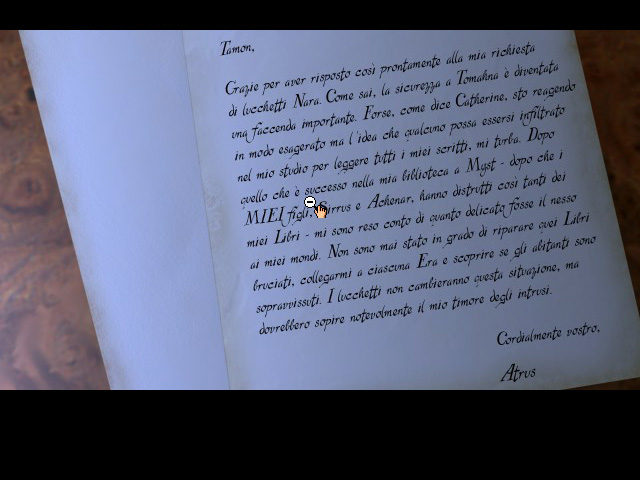 Tamon,
Grazie per aver risposto così prontamente alla mia richiesta
di lucchetti Nara. Come sai, la sicurezza a Tomahna è diventata
una faccenda importante. Forse, come dice Catherine, sto reagendo
in modo esagerato ma l'idea che qualcuno possa essersi infiltrato
nel mio studio per leggere tutti i miei scritti, mi turba. Dopo
quello che è successo nella mia biblioteca a Myst - dopo che i
MIEI figli, Sirrus e Achenar, hanno distrutti così tanti dei
miei Libri - mi sono reso conto di quanto delicato fosse il nesso
ai miei mondi. Non sono mai stato in grado di riparare quei Libri
bruciati, collegarmi a ciascuna Era e scoprire se gli abitanti sono
sopravvissuti. I lucchetti non cambieranno questa situazione, ma
dovrebbero sopire notevolmente il mio timore degli intrusi.
Cordialmente vostro,
Atrus